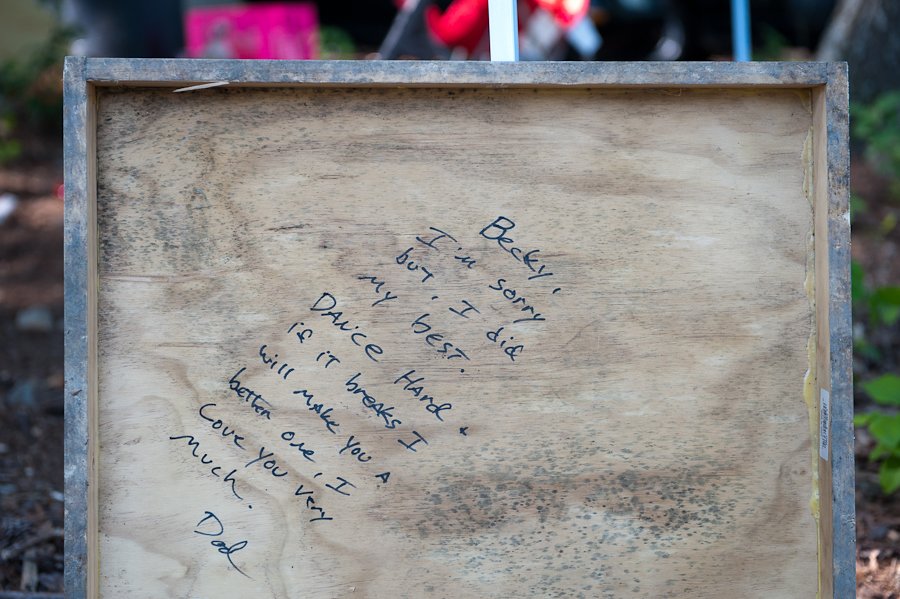 Becky,
I'm sorry
but, I did
my best.
Dance Hard &
if it breaks I
will make you a
better one, I
Love you very
much.
Dad